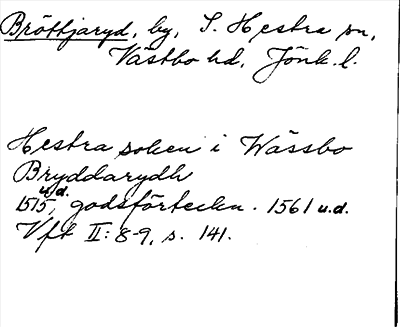 Bröttjaryd, by, S. Hestra sn,
Västbo hd, Jönk. l.
Hestra soken i Wässbo
Bryddarydh
u.d.
1515, godsförteckn. 1561 u.d.
Vft II: 8-9, s. 141.